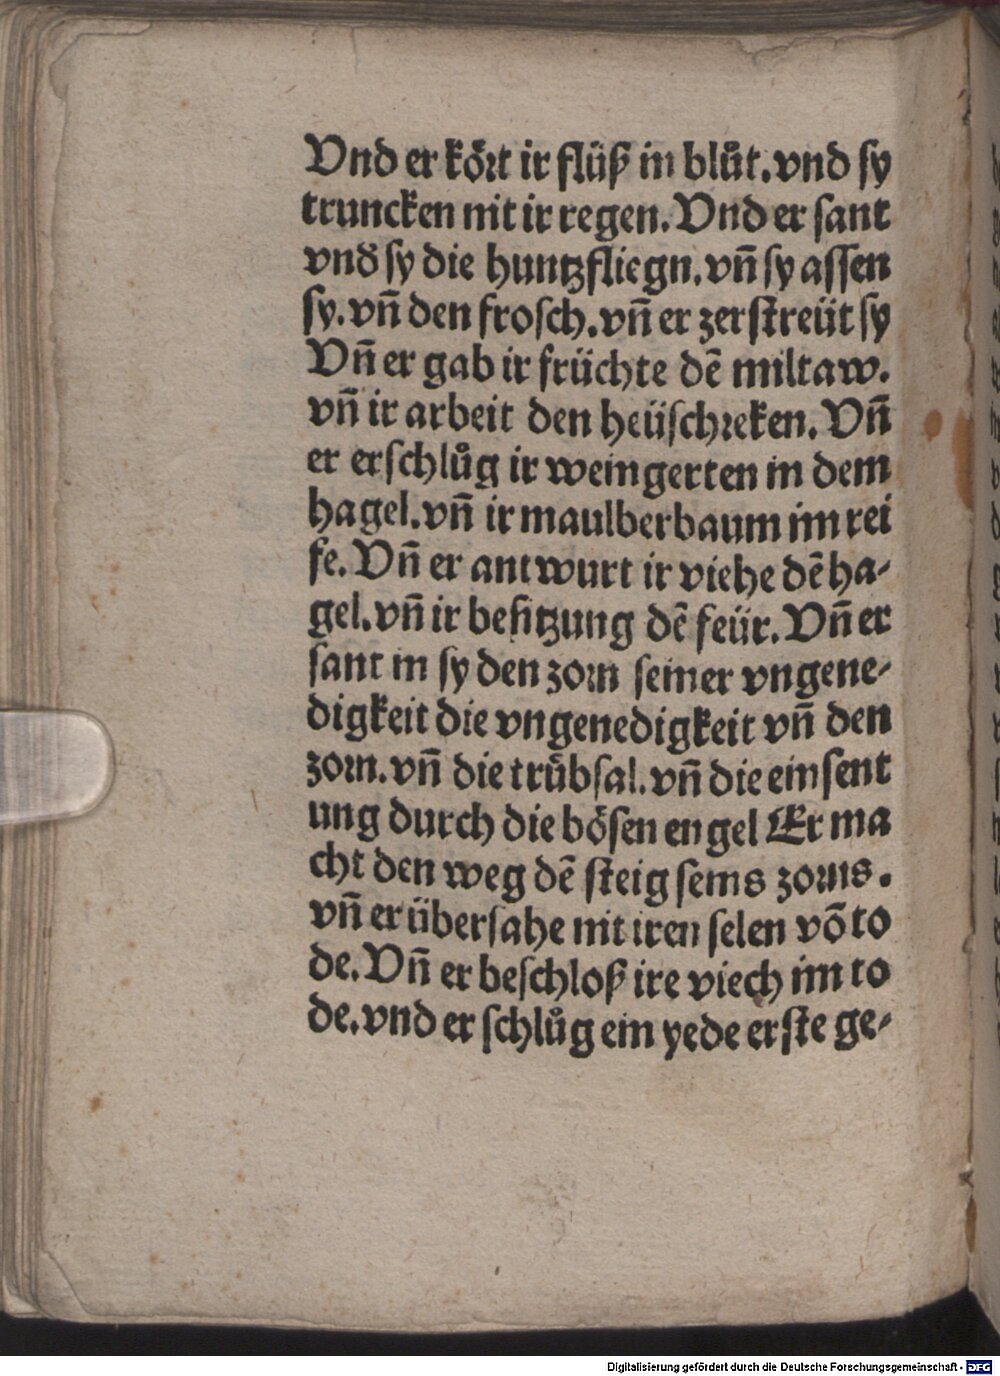 Vnd er koͤrt ir flüß in bluͦt. vnd sy
truncken nit ir regen. Vnd er sant
vnd sy die huntzfliegn. vn̄ sy assen
sy. vn̄ den frosch. vn̄ er zerstreüt sy
Vn̄ er gab ir früchte dē miltaw.
vn̄ ir arbeit den heüschreken. Vn̄
er erschluͦg ir weingerten in dem
hagel. vn̄ ir maulberbaum im rei
fe. Vn̄ er antwurt ir viehe dē ha-
gel. vn̄ ir besitzung dē feür. Vn̄ er
sant in sy den zorn seiner vngene-
digkeit die vngenedigkeit vn̄ den
zorn. vn̄ die truͤbsal. vn̄ die einsent
ung durch die boͤsen engel Er ma
cht den weg dē steig seins zorns.
vn̄ er übersahe nit iren selen vō to
de. Vn̄ er beschloß ire viech im to
de. vnd er schluͦg ein yede erste ge-
Digitalisierung gefördert durch die Deutsche Forschungsgemeinschaft - DFG